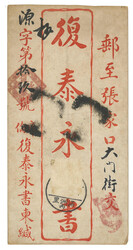 郵至張家口大門街交
復泰永書
源字第拾玖號 復泰永書柬緘